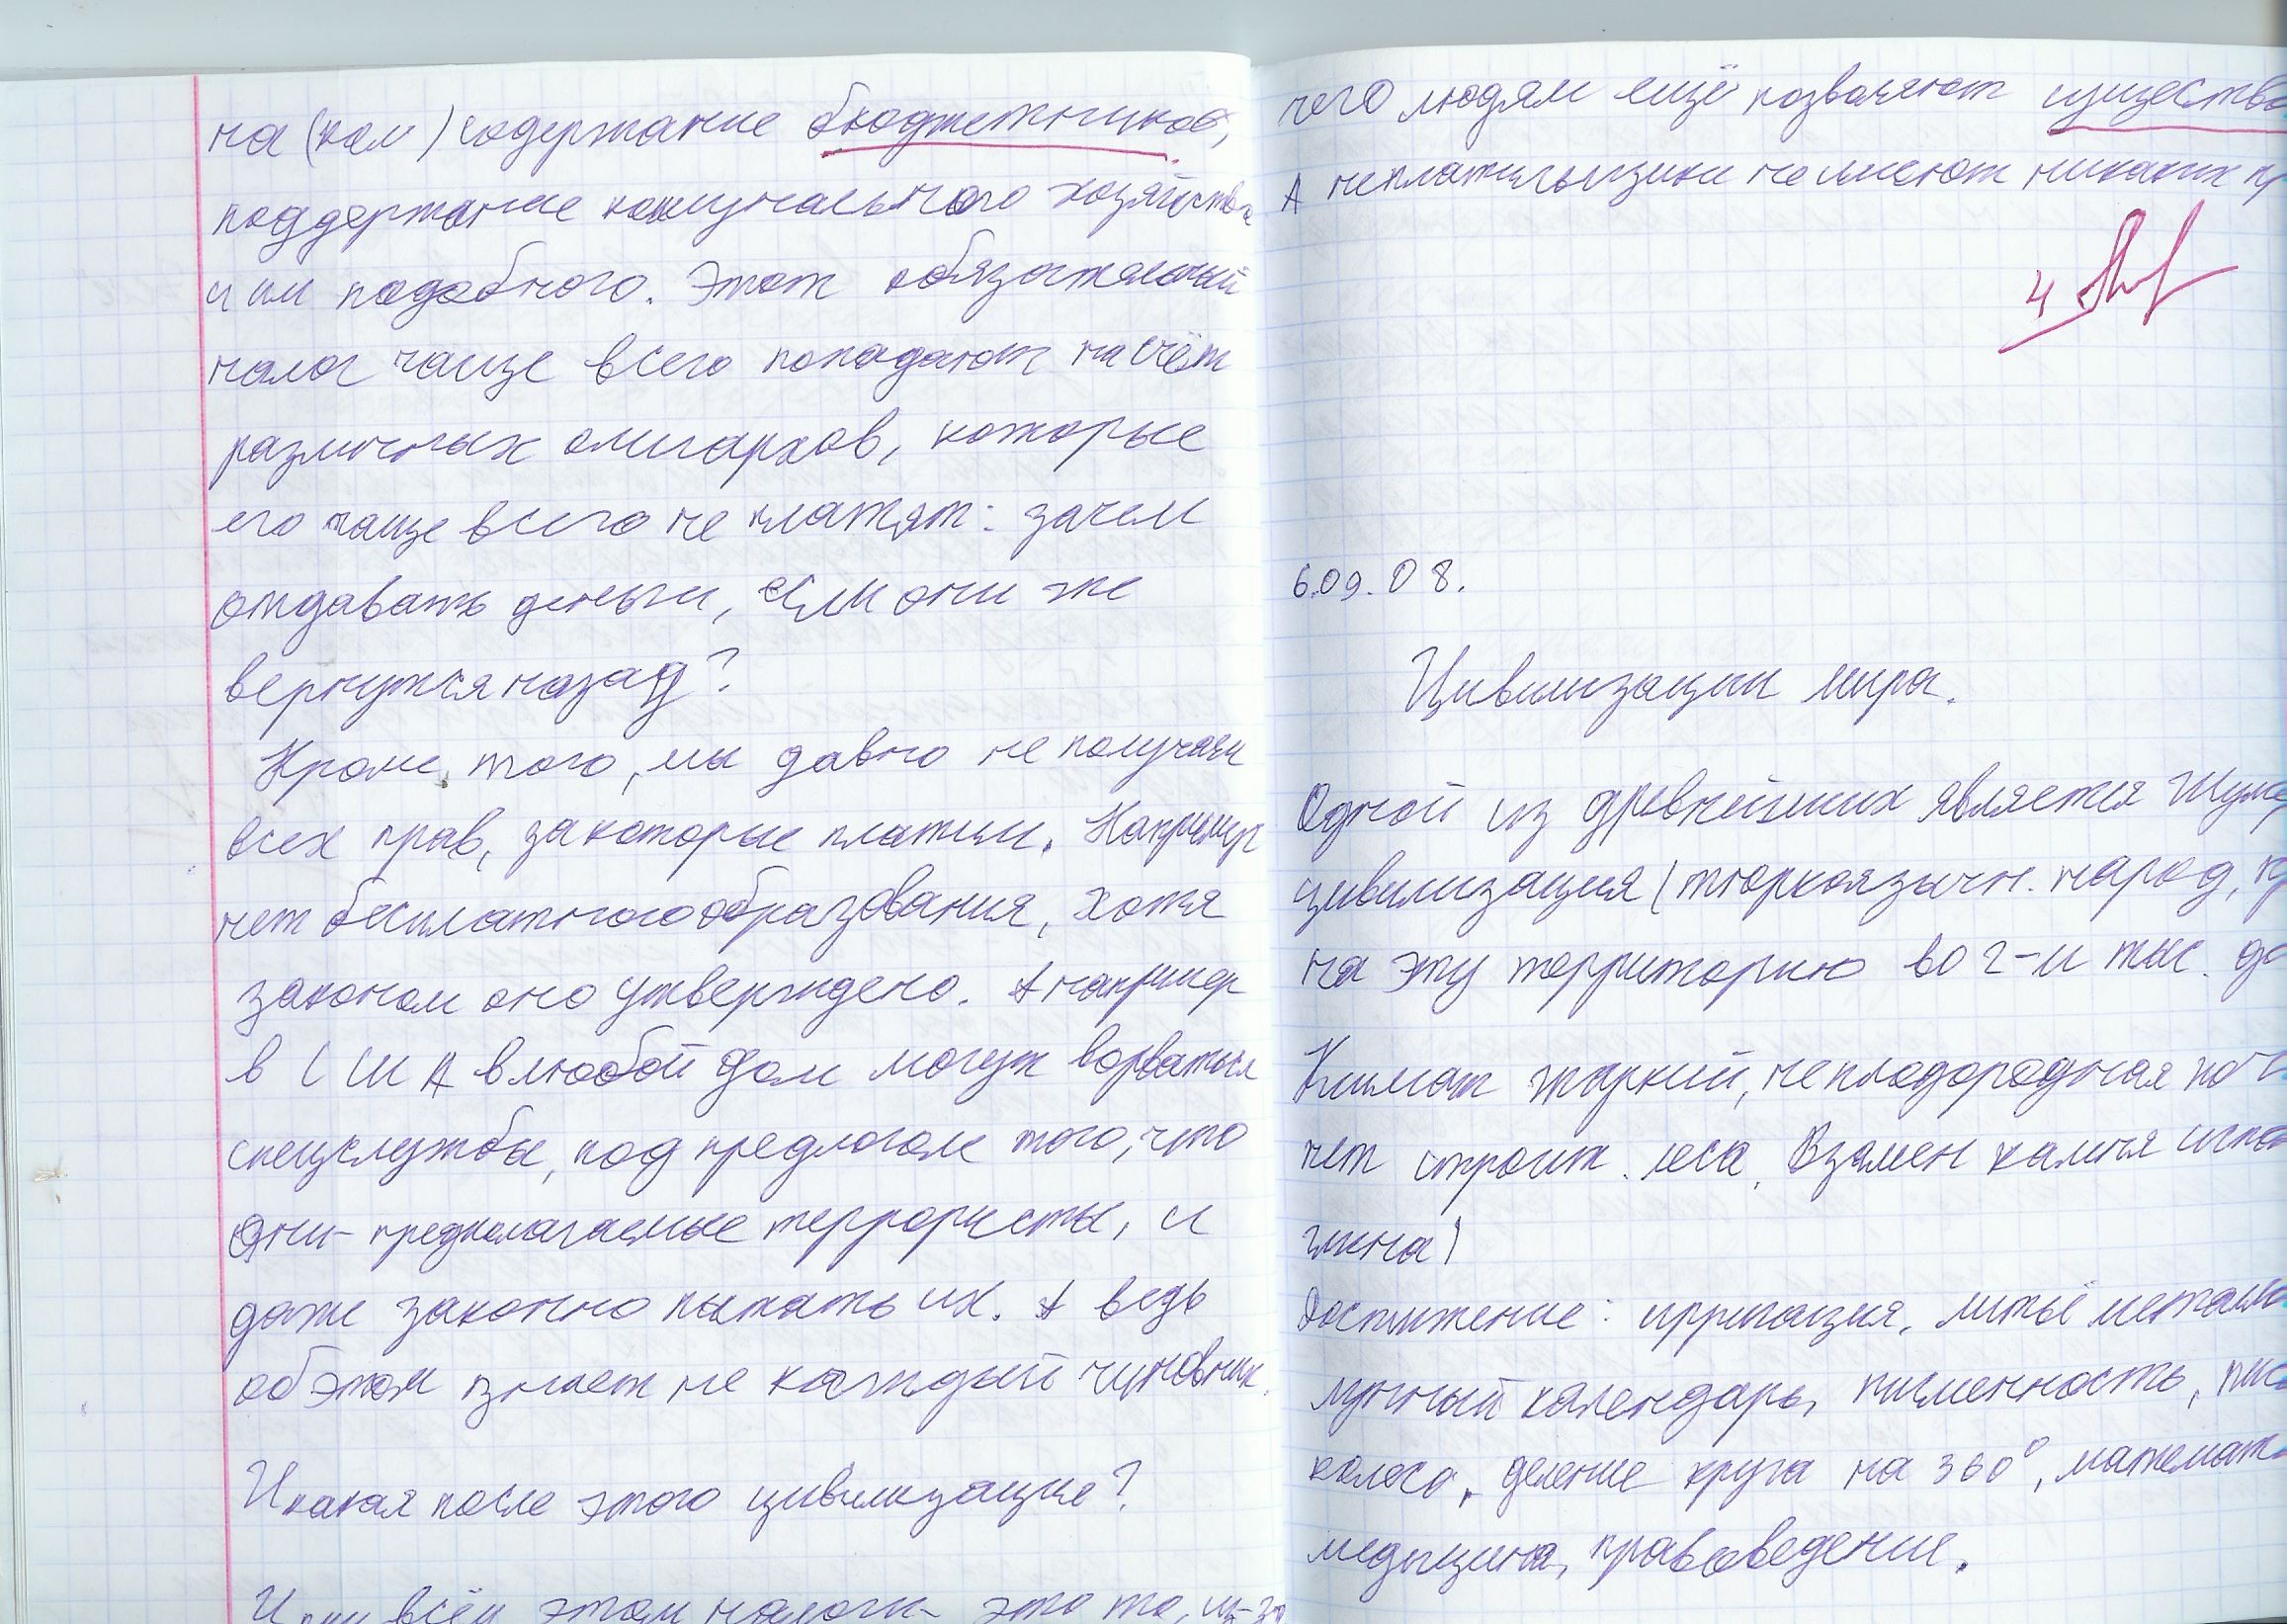 на (ком) содержание бюджетников,
поддержание комунального хозяйства
и им подобного. Этот обязательный
налог чаще всего попадают на счёт
различных олигархов, которые
его чаще всего не платят: зачем
отдавать деньги, если они же
вернутся назад?
Кроме, того, мы давно не получаем
всех прав, за которые платим. Например
нет бесплатного образования, хотя
законом оно утверждено. А например
в США в любой дом могут ворваться
спецслужбы, под предлогом того, что
они - предполагаемые террористы, и
даже законно пытать их. А ведь
об этом знает не каждый чиновник.
И какая после этого цивилизация?
И при всём этом налоги - это то, из-за
чего людям ещё позволяют существо
А неплательщики не имеют никаких пр
4
6.09.08.
Цивилизации мира.
Одной из древнейших является Шуме
цивилизация (тюркоязычн. народ, пр
на эту территорию во 2-и тыс. до
Климат жаркий, неплодородная по
нет строит. леса. Взамен камня испо
глина)
Достижение: ирригация, литьё металл
лунный календарь, писменность, пис
колесо, деление круга на 360°, математ
медицина, правоведение.